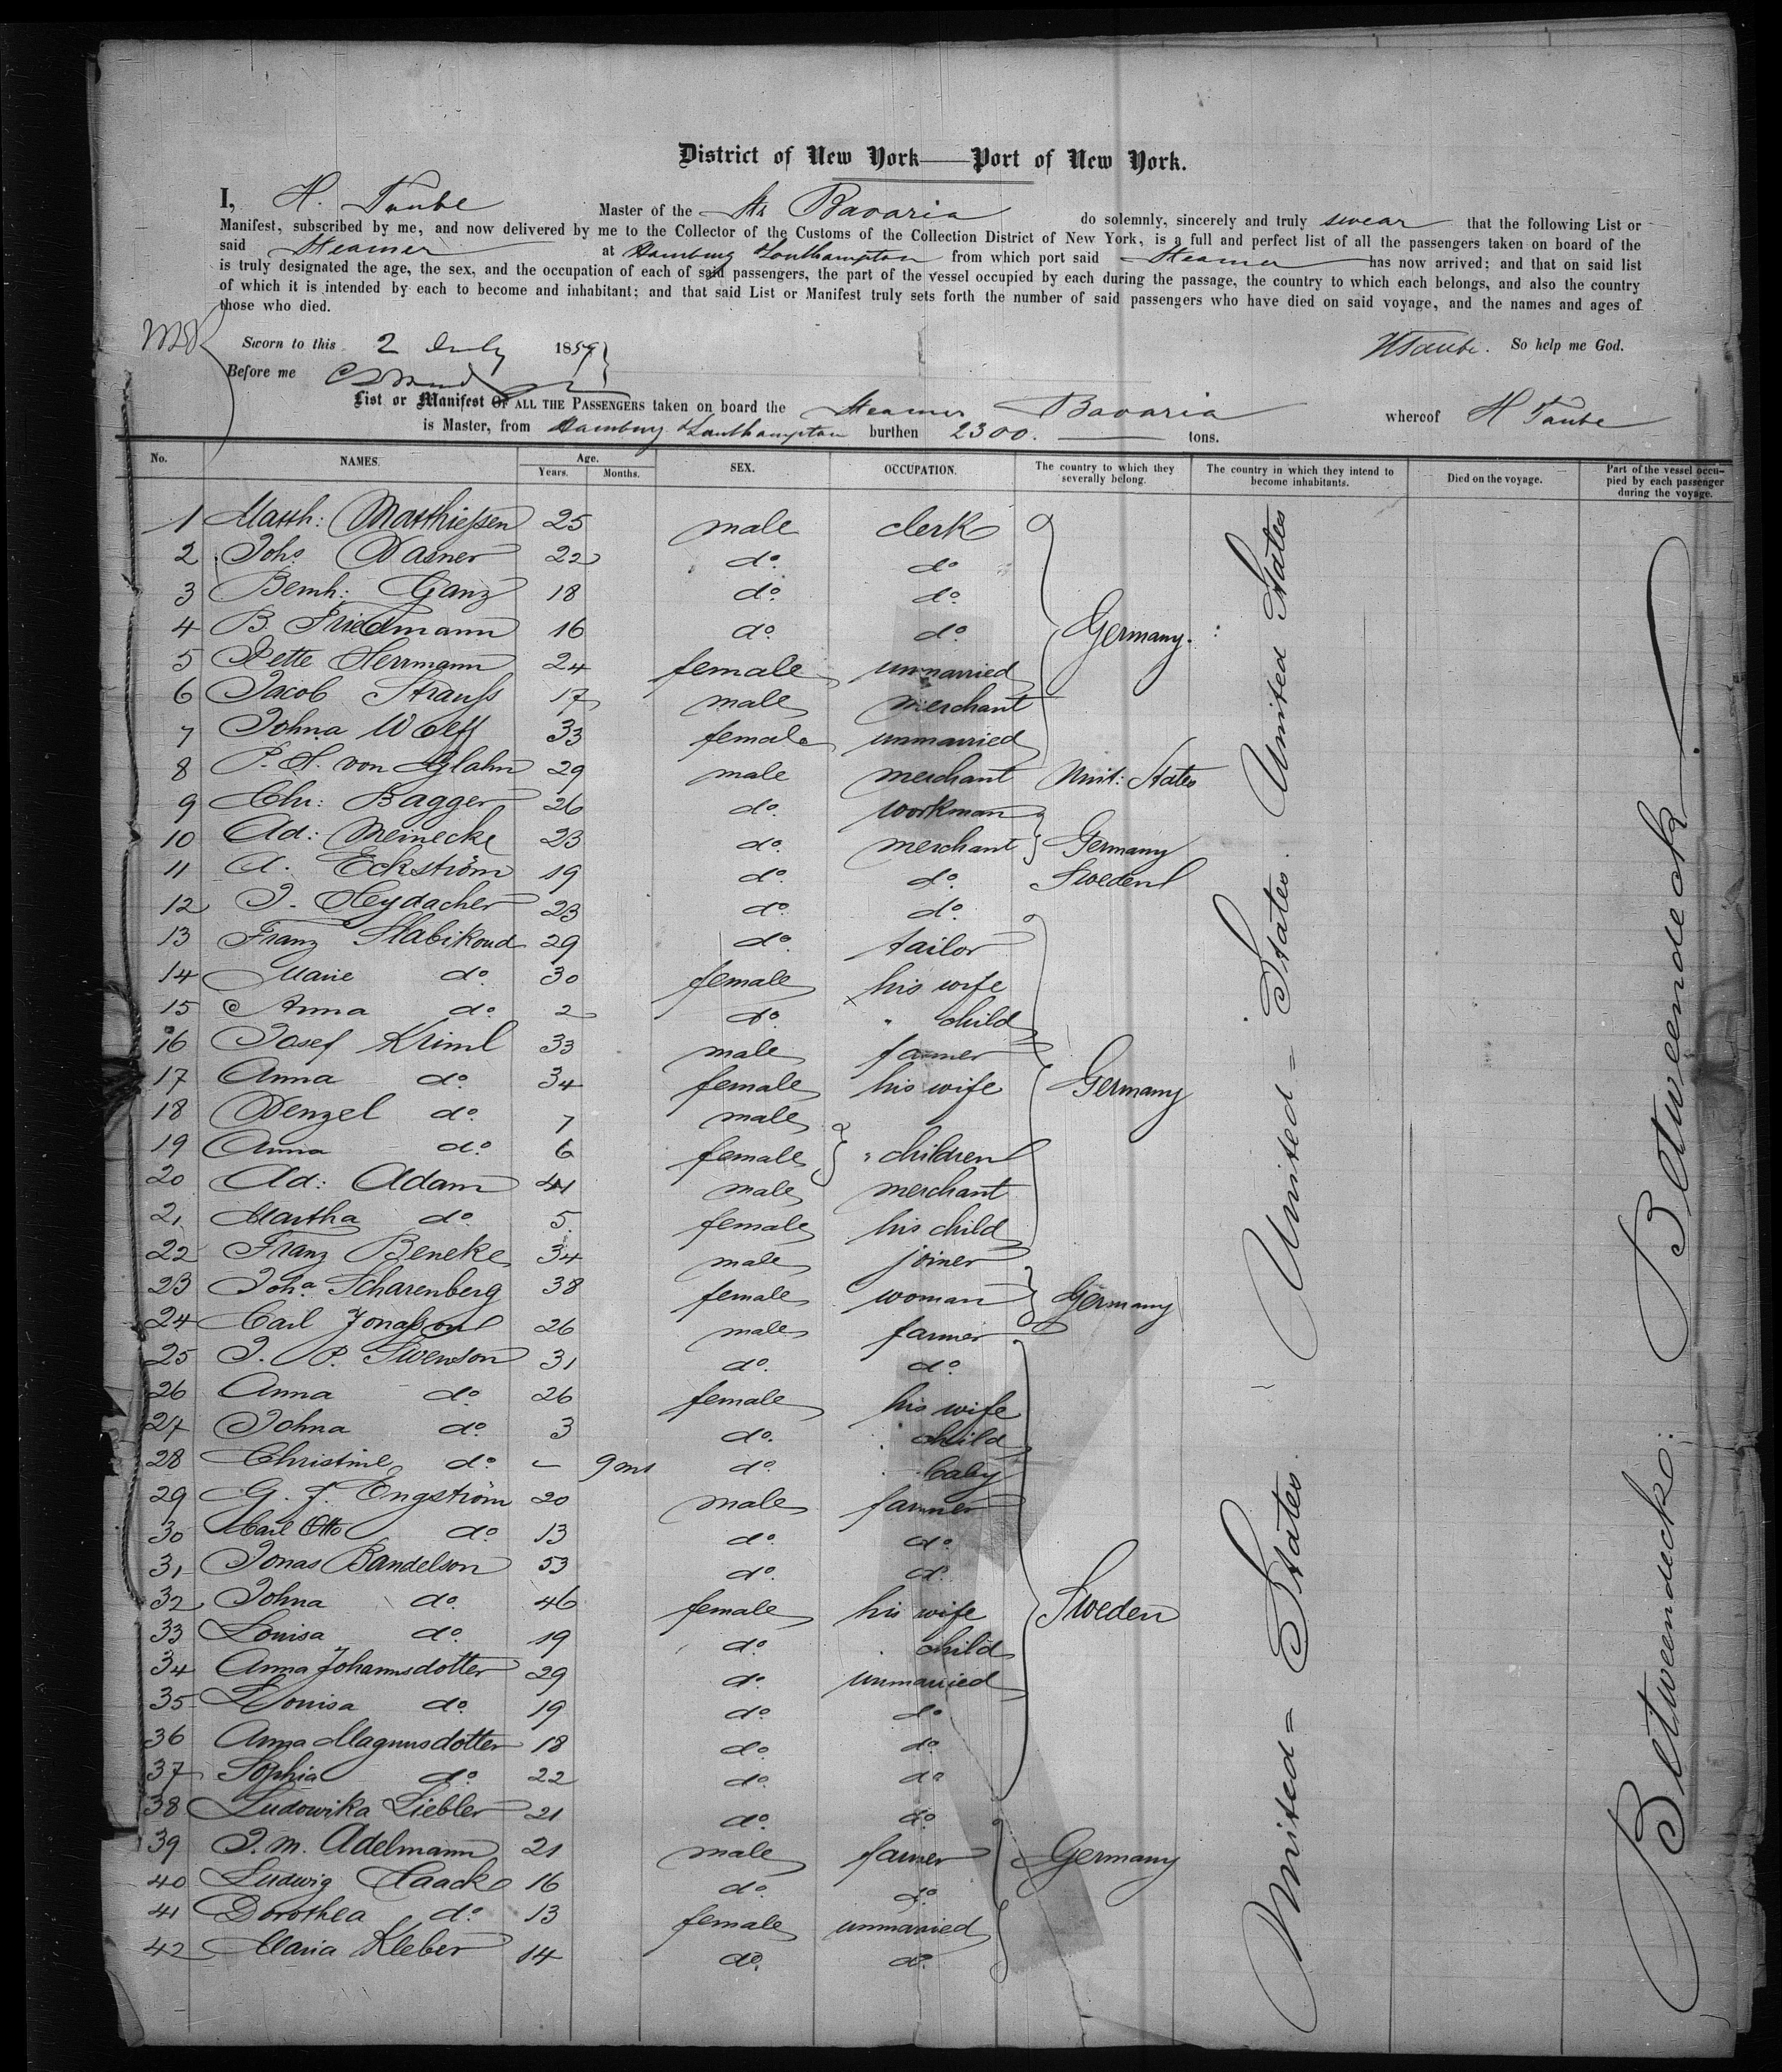 District of New York—Port of New York.
I, H. Taube Master of the Str Bavaria do solemnly, sincerely and truly swear that the following List or
Manifest, subscribed by me, and now delivered by me to the Collector of the Customs of the Collection District of New York, is a full and perfect list of all the passengers taken on board of the
said Steamer at Hamburg & Southampton from which port said Steamer has now arrived; and that on said list
is truly designated the age, the sex, and the occupation of each of said passengers, the part of the vessel occupied by each during the passage, the country to which each belongs, and also the country
of which it is intended by each to become and inhabitant; and that said List or Manifest truly sets forth the number of said passengers who have died on said voyage, and the names and ages of
those who died.
Sworn to this 2 July 1859 HTaube. So help me God.
Before me
List or Manifest OF ALL THE PASSENGERS taken on board the Steamer Bavaria whereof H Taube
is Master, from Hamburg & Southampton burthen 2300. tons.
No. NAMES. Age. Years. Months. SEX. OCCUPATION. The country to which they severally belong. The country in which they intend to become inhabitants. Died on the voyage. Part of the vessel occupied by each passenger during the voyage.
1 Matth: Matthießen 25 male clerk
2 Johs Wasner 22 do. do
3 Bernh: Ganz 18 do. do.
4 B. Friedmann 16 do. do. Germany.
5 Pette Herrmann 24 female unmarried
6 Jacob Strauß 17 male merchant
7 Johna Wolff 33 female unmarried
8 P. H. von Glahn 29 male merchant Unit: States
9 Chr: Bagger 26 do. workman
10 Ad: Meinecke 23 do. merchant Germany
11 A. Eckström 19 do. do. Sweden
12 J. Heydacher 23 do. do.
13 Franz Slabikoud 29 do. tailor
14 Marie do. 30 female his wife
15 Anna do. 2 do. " child
16 Josef Kriml 33 male farmer
17 Anna do. 34 female his wife Germany
18 Wenzel do. 7 male
19 Anna do. 6 female " children
20 Ad: Adam 41 male merchant
21 Martha do. 5. female his child
22 Franz Beneke 34 male joiner
23 Joha Scharenberg 38 female woman Germany
24 Carl Jonaßon 26 male farmer
25 J. P. Swenson 31 do. do
26 Anna do. 26 female his wife
27 Johna do. 3 do. " child
28 Christine do. – 9 ms do. baby
29 G. J. Engström 20 male farmer
30 Carl Otto do. 13 do. do.
31 Jonas Bandelson 53 do. do.
32 Johna do. 46 female his wife Sweden
33 Louisa do. 19 do. " child
34 Anna Johannsdotter 29 do. unmarried
35 Louisa do. 19 do. do
36 Anna Magnusdotter 18 do. do.
37 Sophia do. 22 do. do
38 Ludowika Liebler 21 do. do.
39 J. M. Adelmann 21 male farmer Germany
40 Ludwig Haack 16 do. do.
41 Dorothea do. 13 female unmarried
42 Maria Kleber 14 do. do.
United States
United = States.
United = States.
Betweendeck.
Betweendeck: